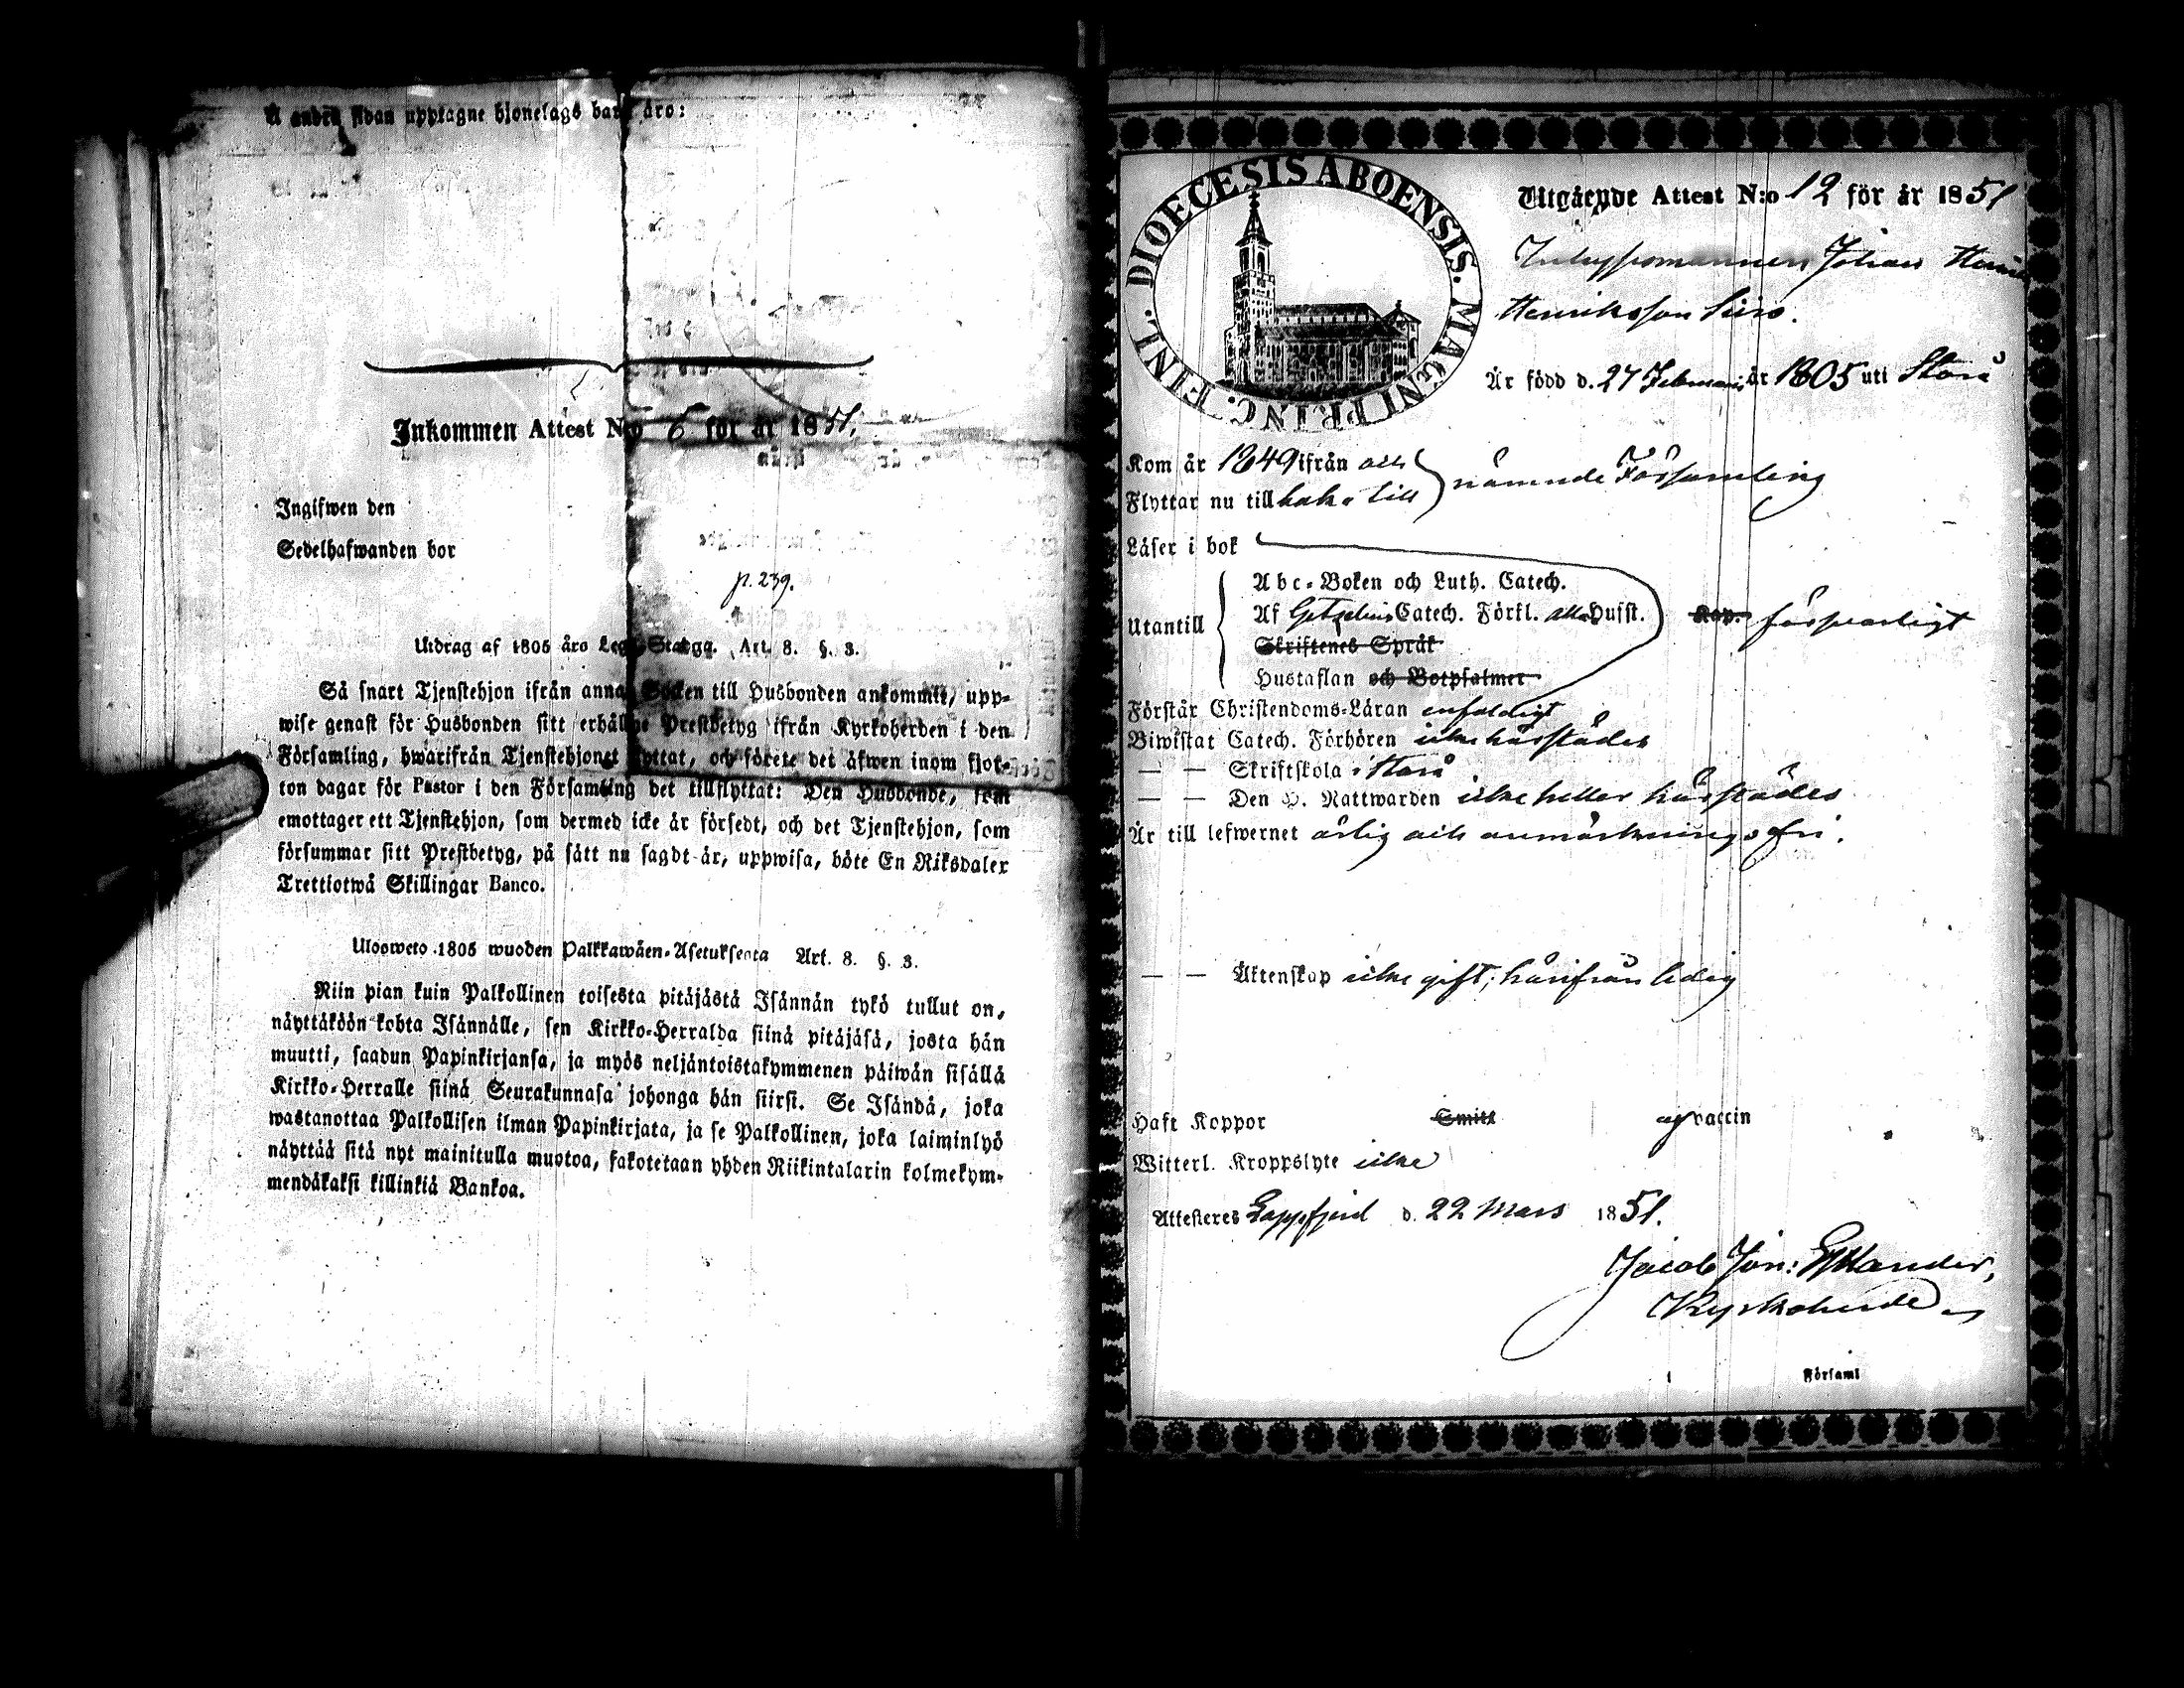 Å andra sidan upptagne hjonelags barn äro:
Inkommen Attest N:o 6 för år 1851.
Ingifwen den
Sedelhafwanden bor
p. 239.
Utdrag af 1805 års Lego-Stadga. Art. 8. §. 3.
Så snart Tjenstehjon ifrån annan Socken till Husbonden ankommit, upp-
wise genast för Husbonden sitt erhållne Prestbetyg ifrån Kyrkoherden i den
Församling, hwarifrån Tjenstehjonet flyttat, och förete det äfwen inom fjor-
ton dagar för Pastor i den Församling det tillflyttat: Den Husbonde, som
emottager ett Tjenstehjon, som dermed icke är försedt, och det Tjenstehjon, som
försummar sitt Prestbetyg, på sätt nu sagdt är, uppwisa, böte En Riksdaler
Trettiotwå Skillingar Banco.
Uloosweto 1805 wuoden Palkkawäen-Asetuksesta Art. 8. §. 3.
Niin pian kuin Palkollinen toisesta pitäjästä Isännän tykö tullut on,
näyttäköön kohta Isännälle, sen Kirkko-Herralda siinä pitäjäsä, josta hän
muutti, saadun Papinkirjansa, ja myös neljäntoistakymmenen päiwän sisällä
Kirkko-Herralle siinä Seurakunnasa johonga hän siirsi. Se Isändä, joka
wastanottaa Palkollisen ilman Papinkirjata, ja se Palkollinen, joka laiminlyö
näyttää sitä nyt mainitulla muotoa, sakotetaan yhden Riikintalarin kolmekym-
mendäkaksi killinkiä Bankoa.
DIOECESIS ABOENSIS. MAGNI PRINC. FINL.
Utgående Attest N:o 12 för år 1851
Inhysesmannen Johan
Henriksson Siiro.
Är född d. 27 Februari år 1805 uti Storå
Kom år 1849 ifrån och
Flyttar nu till baka till } nämnde Församling
Läser i bok
Utantill
Abc-Boken och Luth. Catech.
Af Getzelius Catech. Förkl. alla Husst.
Kap. försvarligt
Skriftenes Språk
Hustaflan och Botpsalmer
Förstår Christendoms-Läran enfaldigt
Biwistat Catech. Förhören icke härstädes
— — Skriftskola i Storå
— — Den H. Nattwarden icke heller härstädes
Är till lefwernet ärlig och anmärkningsfri.
— — Äktenskap icke gift; härifrån ledig
Haft Koppor Smitt af vaccin
Witterl. Kroppslyte icke
Attesteres Lappfjerd d. 22 Mars 1851.
Kyrkoherde
i Församl